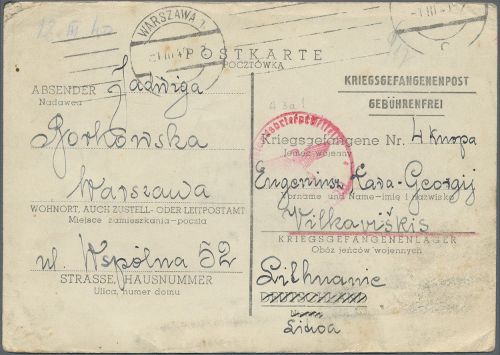 12. III 40
WARSZAWA 1
-1 III 40
POSTKARTE
POCZTÓWKA
KRIEGSGEFANGENENPOST
GEBÜHRENFREI
ABSENDER Jadwiga
Nadawca
Gorkowska
Warszawa
WOHNORT, AUCH ZUSTELL- ODER LEITPOSTAMT
Miejsce zamieszkania—poczta
ul. Wspólna 52
STRASSE, HAUSNUMMER
Ulica, numer domu
Kriegsgefangene Nr. 4
Jeniec wojenny
Eugeniusz
Vorname und Name—imię i nazwisko
Vilkaviškis
KRIEGSGEFANGENENLAGER
Obóz jeńców wojennych
Lithuanie